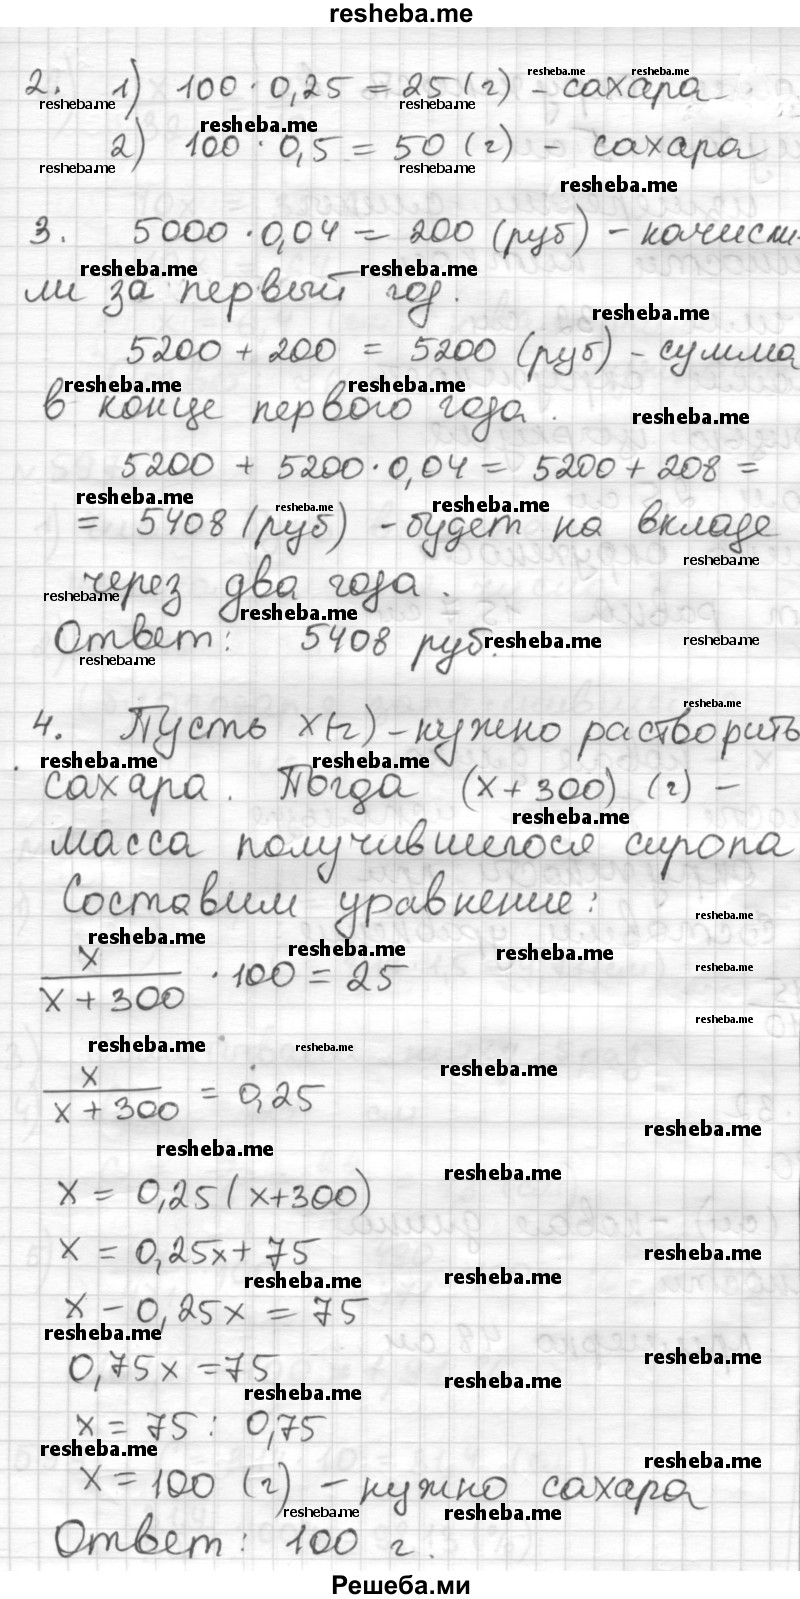 resheba.me
2. 1) 100 · 0,25 = 25 (г) - сахара
2) 100 · 0,5 = 50 (г) - сахара
3. 5000 · 0,04 = 200 (руб) - начисли-
ли за первый год.
5200 + 200 = 5200 (руб) - сумма
в конце первого года.
5200 + 5200 · 0,04 = 5200 + 208 =
= 5408 (руб) - будет на вкладе
через два года.
Ответ: 5408 руб.
4. Пусть x (г) - нужно растворить
сахара. Тогда (x + 300) (г) -
масса получившегося сиропа
Составим уравнение:
x / x + 300 · 100 = 25
x / x + 300 = 0,25
x = 0,25 (x+300)
x = 0,25x + 75
x - 0,25x = 75
0,75x = 75
x = 75 : 0,75
x = 100 (г) - нужно сахара
Ответ: 100 г.
Решеба.ми